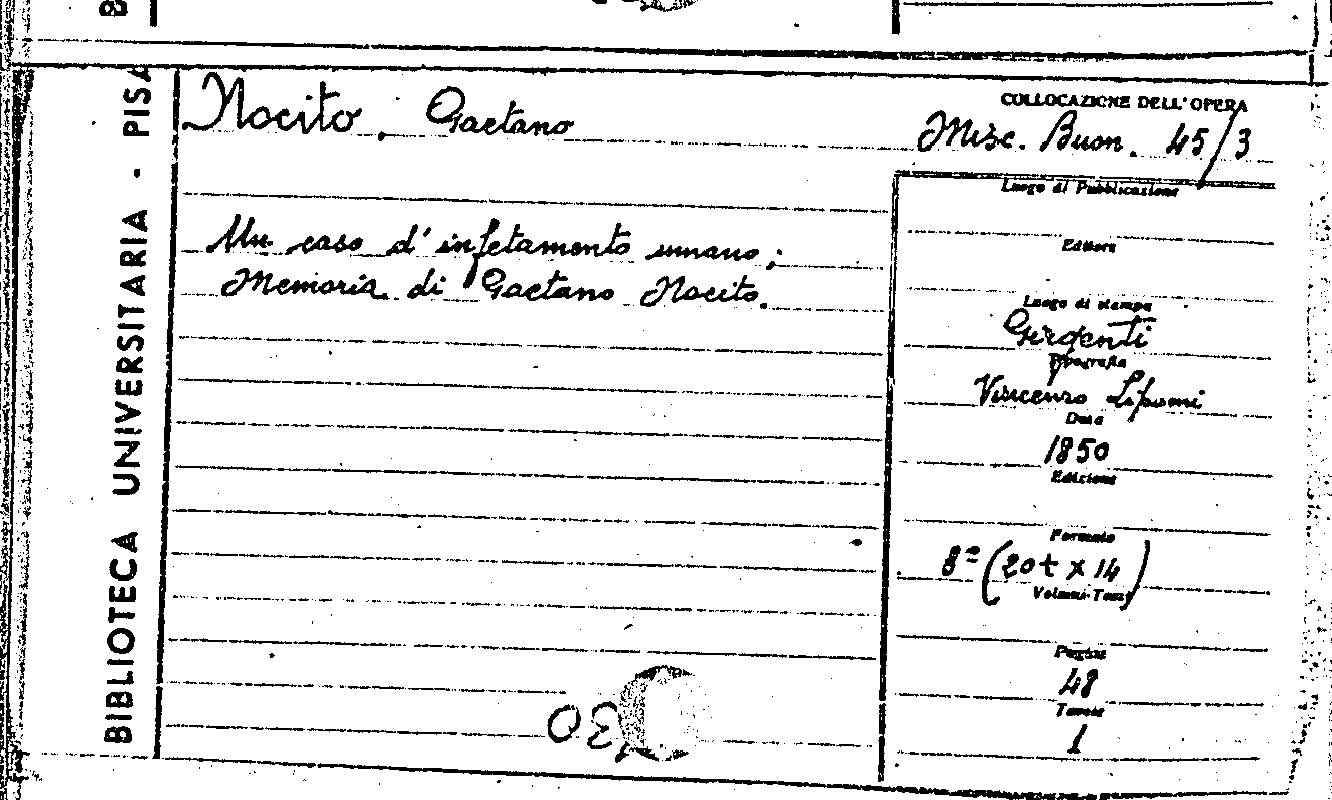 BIBLIOTECA UNIVERSITARIA · PISA
Nocito. Gaetano
COLLOCAZIONE DELL'OPERA
Misc. Buon. 45/3
Un caso d'infetamento umano;
Memoria di Gaetano Nocito.
Luogo di Pubblicazione
Editore
Luogo di stampa
Girgenti
Tipografia
Vincenzo Lipomi
Data
1850
Edizione
Formato
8º (20t x 14)
Volumi-Tomi
Pagine
48
Tavole
1